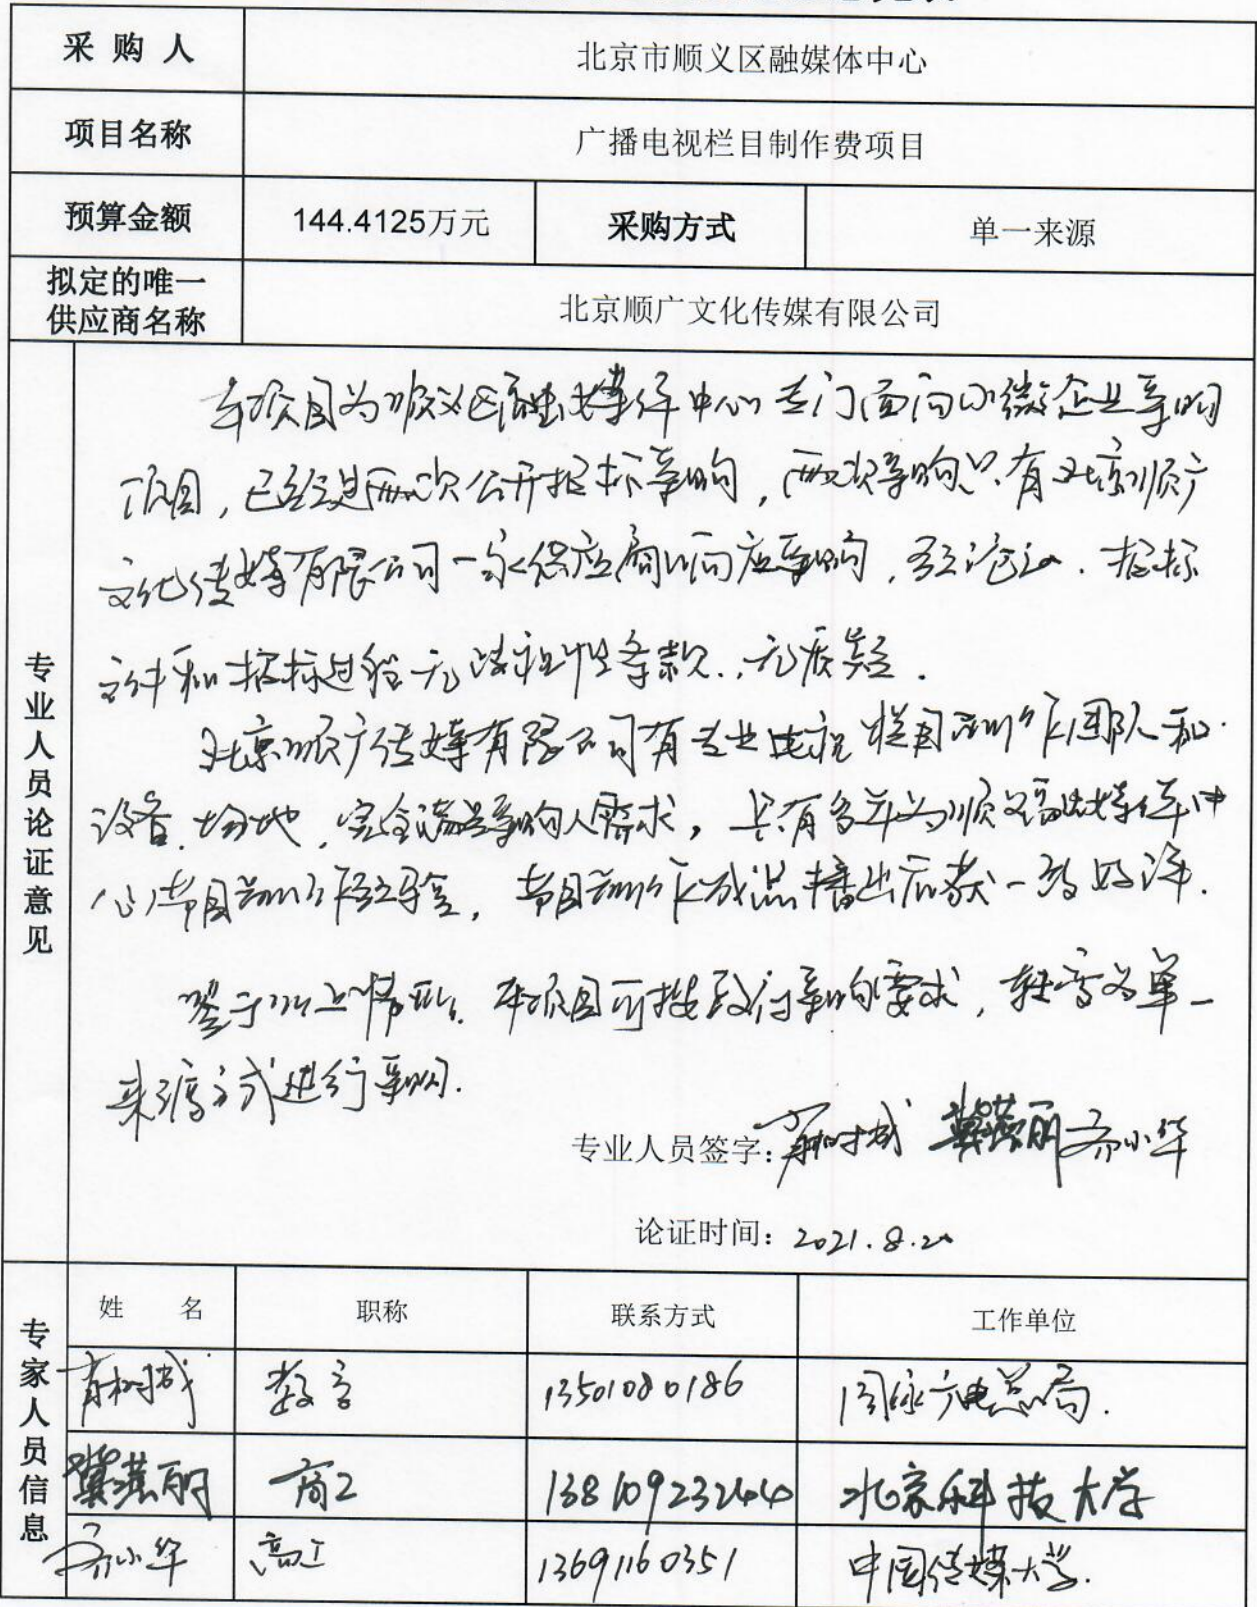 采 购 人
北京市顺义区融媒体中心
项目名称
广播电视栏目制作费项目
预算金额
144.4125万元
采购方式
单一来源
拟定的唯一
供应商名称
北京顺广文化传媒有限公司
专业人员论证意见
本项目为顺义区融媒体中心专门面向小微企业采购
项目，已经过两次公开招标采购，两次采购只有北京顺广
文化传媒有限公司一家供应商响应采购，经论证，招标
文件和招标过程无歧视性条款，无质疑.
北京顺广传媒有限公司有专业电视栏目制作团队和
设备、场地，完全满足采购人需求，具有多年为顺义融媒体中
心节目制作经验，节目制作成品播出后获一致好评.
鉴于以上情形，本项目可按政府采购要求，转变为单一
来源方式进行采购.
专业人员签字：肖树成 冀燕丽 乔小华
论证时间：2021.8.20
专家人员信息
姓 名
职称
联系方式
工作单位
13501080186
广电总局.
冀燕丽
高工
13810923244
北京科技大学
乔小华
高工
13691160351
中国传媒大学.